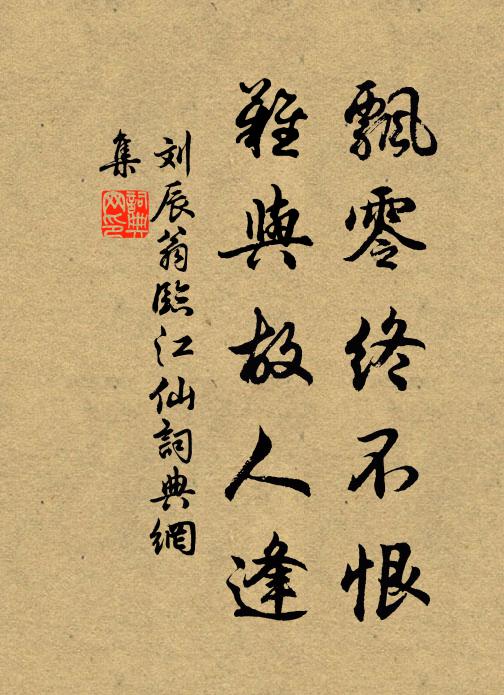 飄零終不恨
難與故人逢
刘辰翁臨江仙詞典網
集
詞典
网印